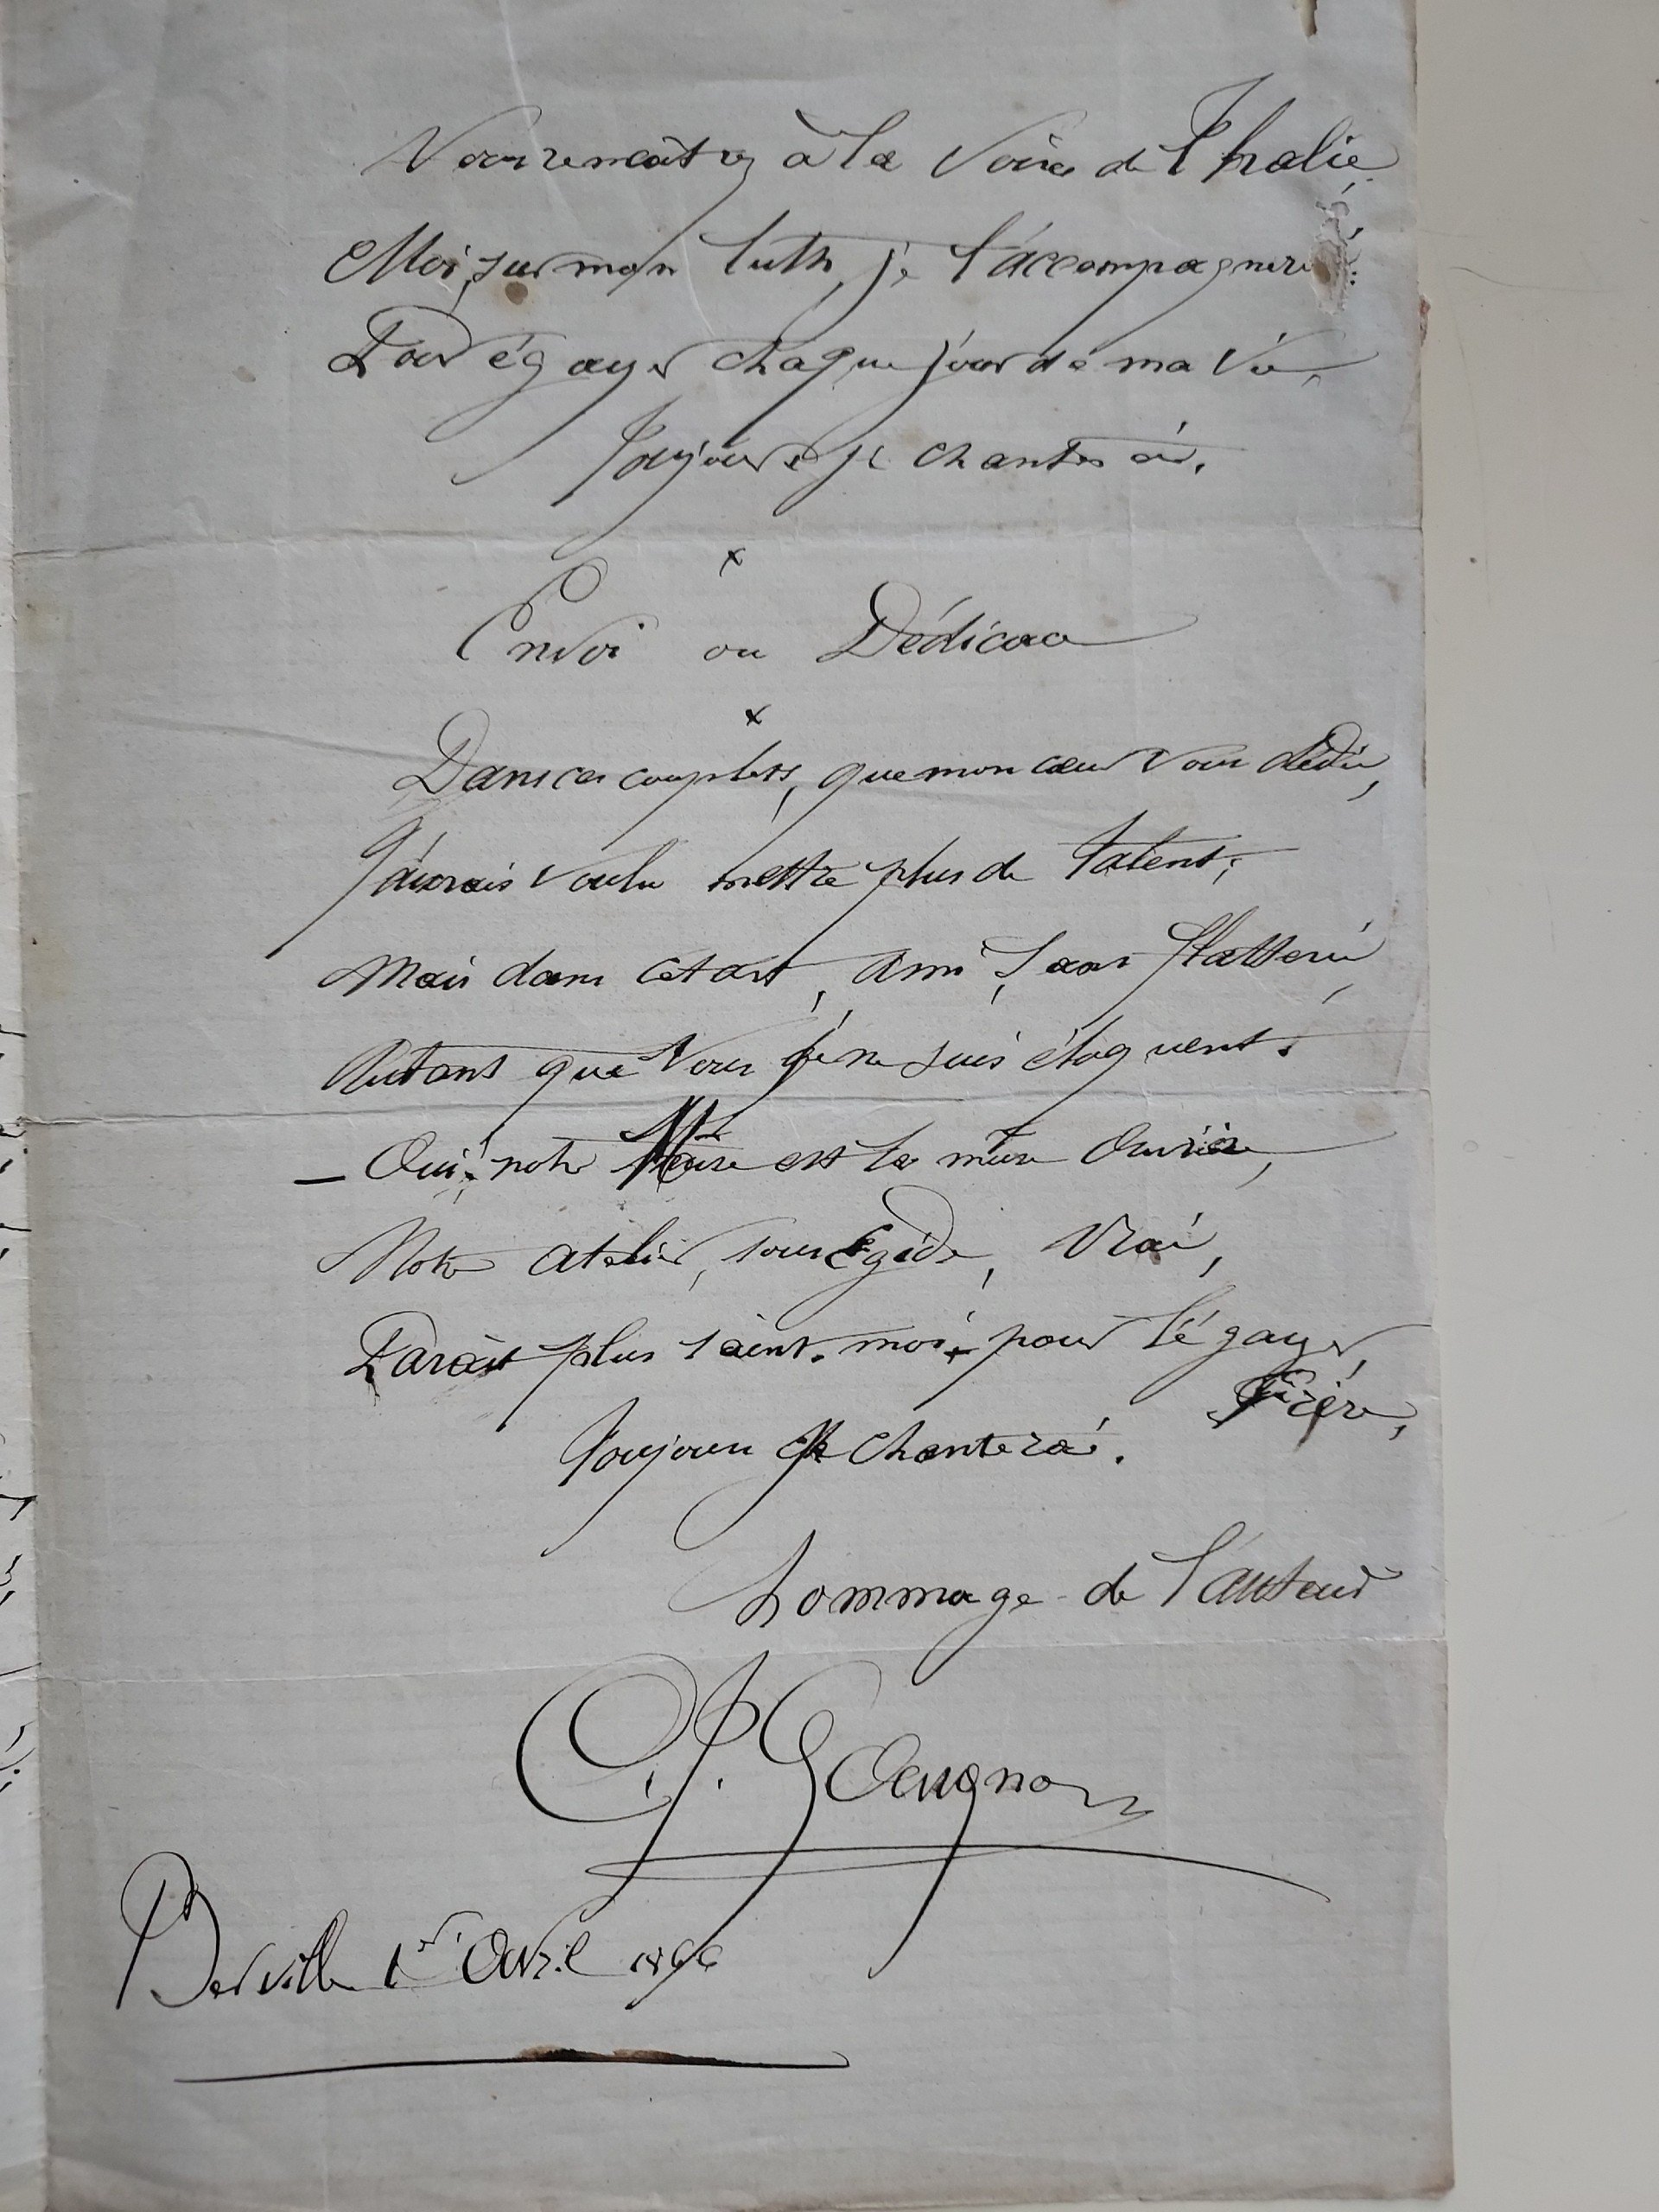 Vous remettez à la voix de Thalie,
Moi, sur mon luth, je l'accompagnerai
Pour égayer chaque jour de ma vie,
Toujours je chanterai.
x
Envoi ou Dédicace
x
Dans ces couplets, que mon cœur vous dédie,
J'aurais voulu mettre plus de talent;
Mais dans cet art, ami, sans flatterie,
Autant que vous je ne suis éloquent.
— Oui, notre est la
Notre atelier, sous Egide, vrai,
Parait plus saint. moi, pour l'égayer,
Frère,
Toujours je chanterai.
hommage de l'auteur
Berville 1er Avril 1866